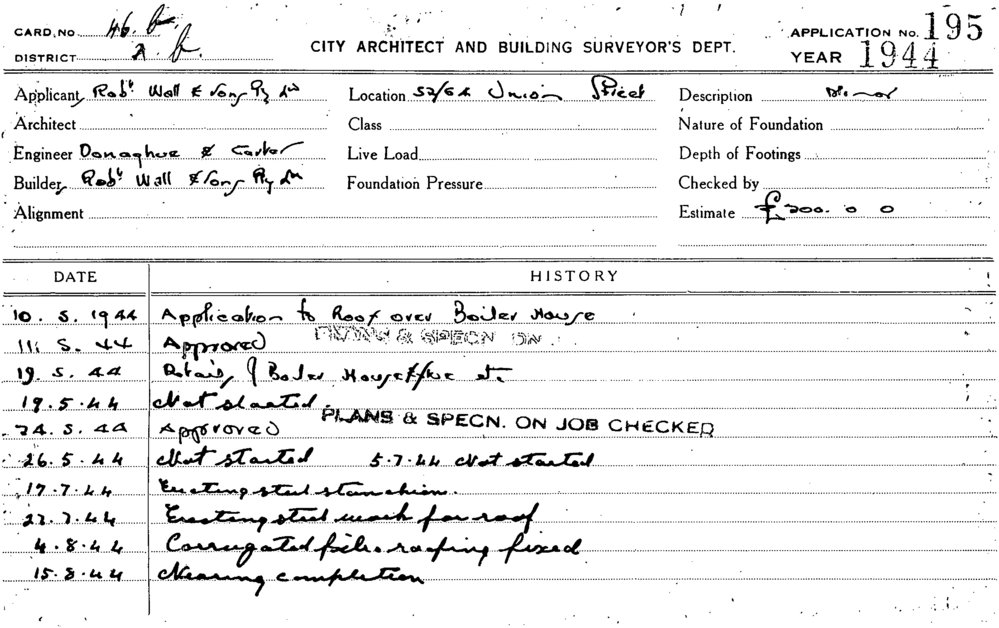 CARD. NO. 46. b.
DISTRICT 2 b.
CITY ARCHITECT AND BUILDING SURVEYOR'S DEPT.
APPLICATION No. 195
YEAR 1944
Applicant Robt Wall & Sons Pty Ltd Location 52/64 Union Street Description Minor
Architect Class Nature of Foundation
Engineer Donaghue & Carter Live Load Depth of Footings
Builder Robt Wall & Sons Pty Ltd Foundation Pressure Checked by
Alignment Estimate £200. 0 0
DATE HISTORY
10. 5. 1944 Application to Roof over Boiler House
11. 5. 44 Approved PLANS & SPECN ON
19. 5. 44 Details of Boiler House etc.
19.5.44 Not started.
PLANS & SPECN. ON JOB CHECKED
24. 5. 44 Approved
26.5.44 Not started 5.7.44 Not started
17.7.44 Erecting steel stanchions.
27.7.44 Erecting steel work for roof
4.8.44 Corrugated fibro roofing fixed
15.8.44 Nearing completion